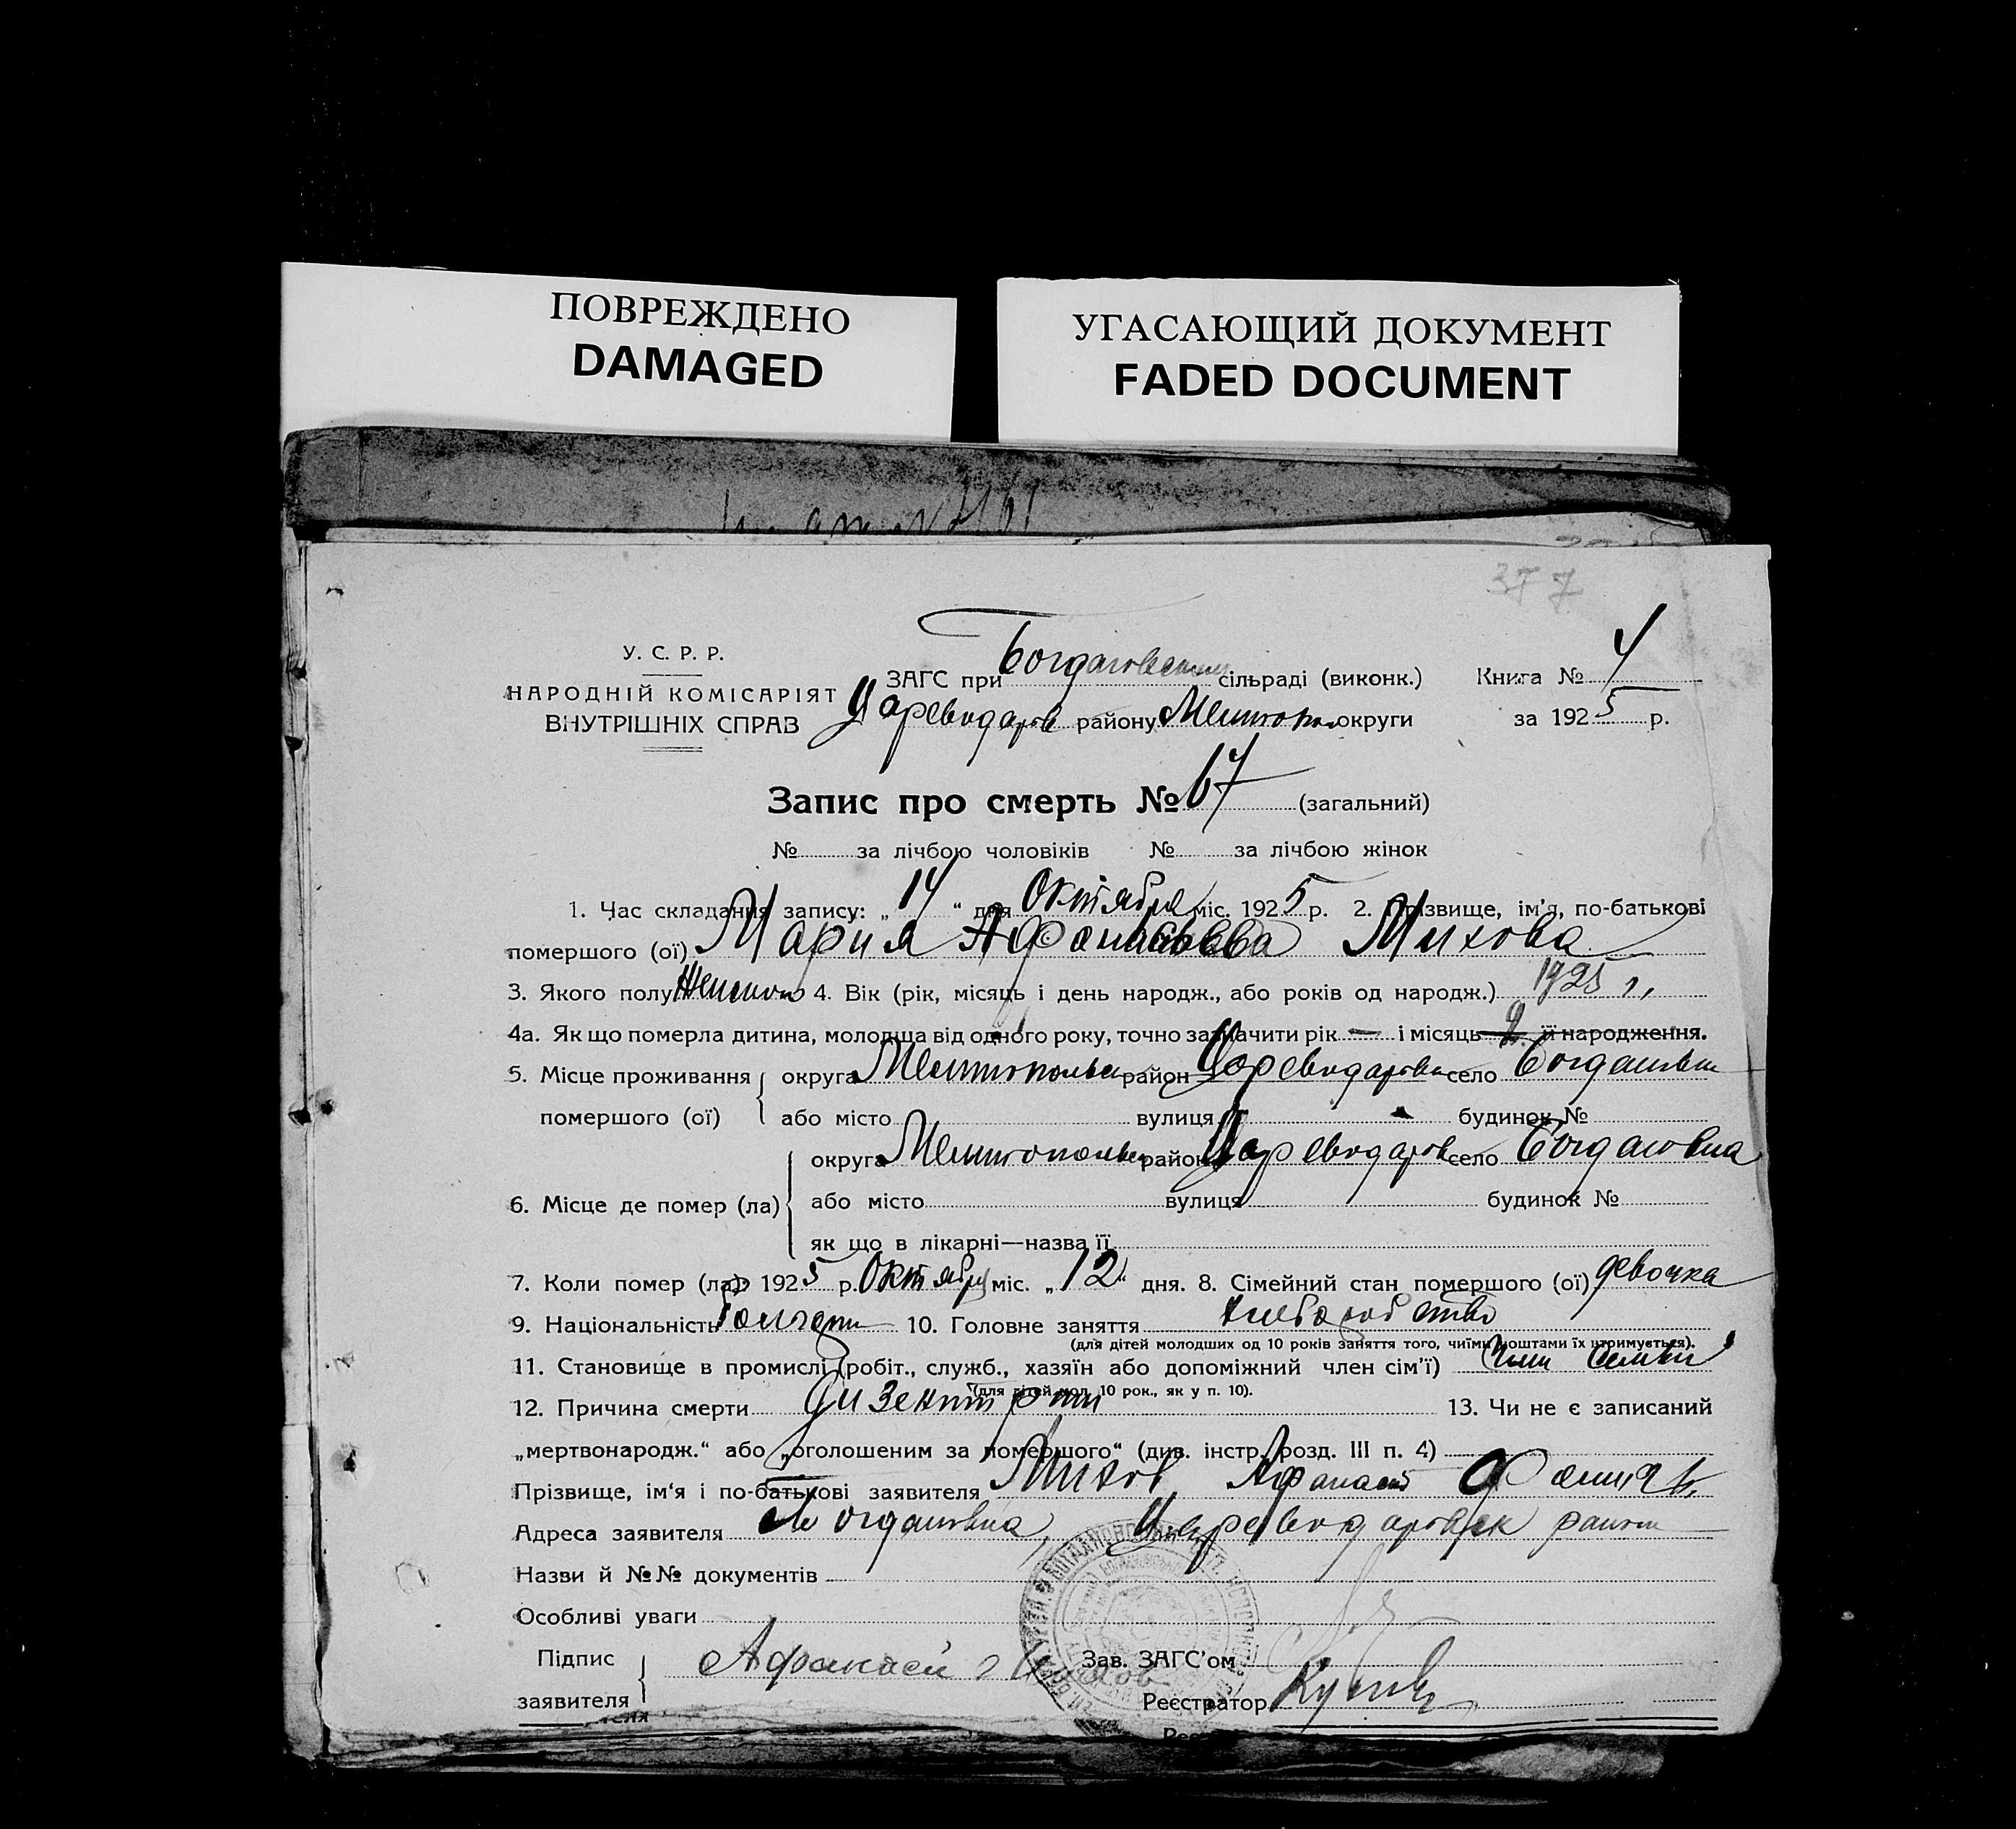 ПОВРЕЖДЕНО
DAMAGED
УГАСАЮЩИЙ ДОКУМЕНТ
FADED DOCUMENT
377
У. С. Р. Р.
НАРОДНІЙ КОМІСАРІЯТ
ВНУТРІШНІХ СПРАВ
ЗАГС при Богдановском сільраді (виконк.) Книга № 4
Цареводаров району Мелитопол округи за 1925 р.
Запис про смерть № 67 (загальний)
№ за лічбою чоловіків № за лічбою жінок
1. Час складання запису: „14“ дня Октября міс. 1925 р. 2. Прізвище, ім'я, по-батькові
помершого (ої) Мария Афанасьева Михова
3. Якого полу Женского 4. Вік (рік, місяць і день народж., або років од народж.) 1925 г.
4а. Як що померла дитина, молодша від одного року, точно зазначити рік — і місяць 2 її народження.
5. Місце проживання помершого (ої) округа Мелитопольск район Цареводаровск село Богдановка
або місто вулиця будинок №
6. Місце де помер (ла) округа Мелитопольск район Цареводаров село Богдановка
або місто вулиця будинок №
як що в лікарні—назва її
7. Коли помер (ла) 1925 р. Октября міс. „12“ дня. 8. Сімейний стан помершого (ої) девочка
9. Національність болгары 10. Головне заняття хлеборобство
(для дітей молодших од 10 років заняття того, чиїми коштами їх утримується).
11. Становище в промислі (робіт., служб., хазяїн або допоміжний член сім'ї) член семьи
(для дітей мол. 10 рок., як у п. 10).
12. Причина смерти Дизентерии 13. Чи не є записаний
„мертвонародж.“ або „оголошеним за помершого“ (див. інстр. розд. III п. 4)
Прізвище, ім'я і по-батькові заявителя Михов Афанасий
Адреса заявителя Богдановка, Цареводаровск район
Назви й №№ документів
Особливі уваги
Підпис заявителя Афанасий Михов
Зав. ЗАГС'ом
Реєстратор